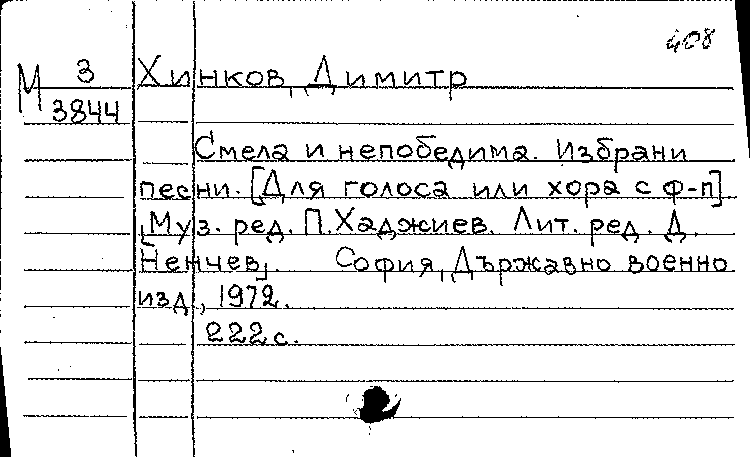 408
М 3/3844 Хинков, Димитр
Смела и непобедима. Избрани
песни. [Для голоса или хора с ф-п]
[Муз. ред. П. Хаджиев. Лит. ред. Д.
Ненчев]. София, Държавно военно
изд, 1972.
222 с.